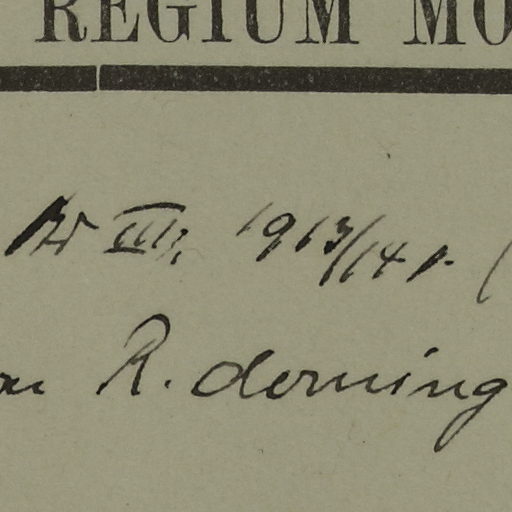 REGIUM MO
III, 1913/14
R. derning